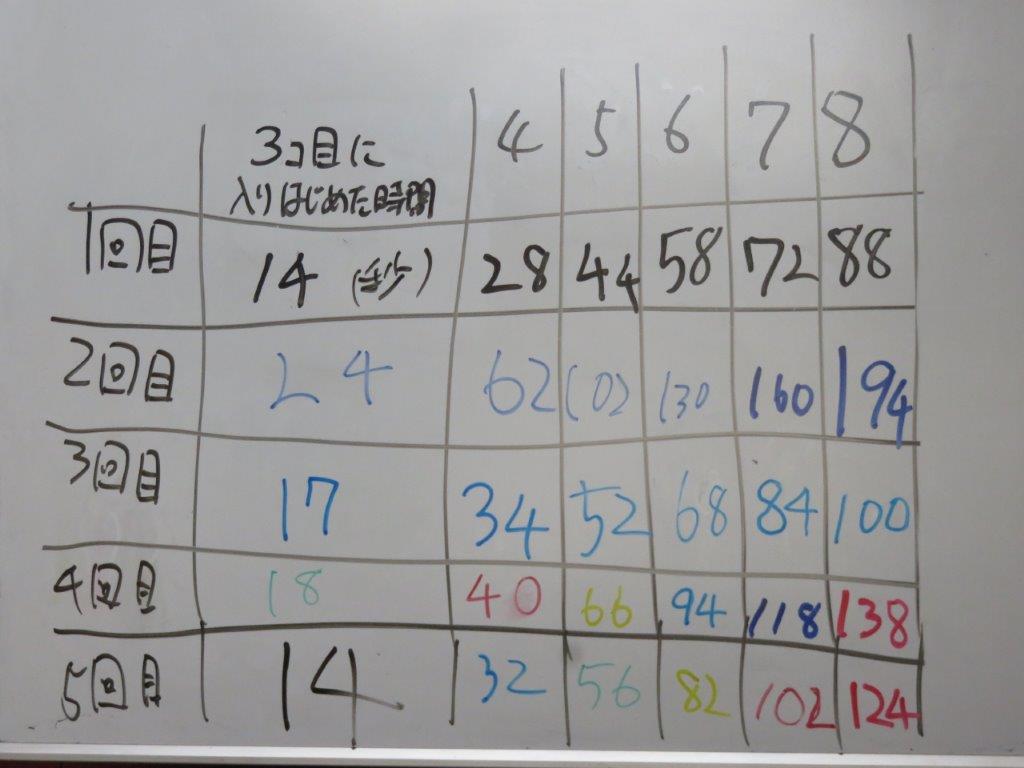 3コ目に 4 5 6 7 8
入りはじめた時間
1回目 14 (秒) 28 44 58 72 88
2回目 24 62 102 130 160 194
3回目 17 34 52 68 84 100
4回目 18 40 66 94 118 138
5回目 14 32 56 82 102 124